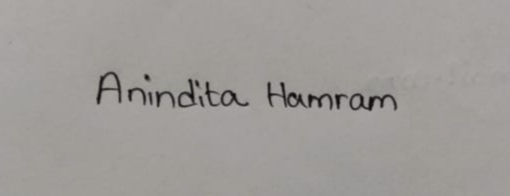 Anindita Hamram